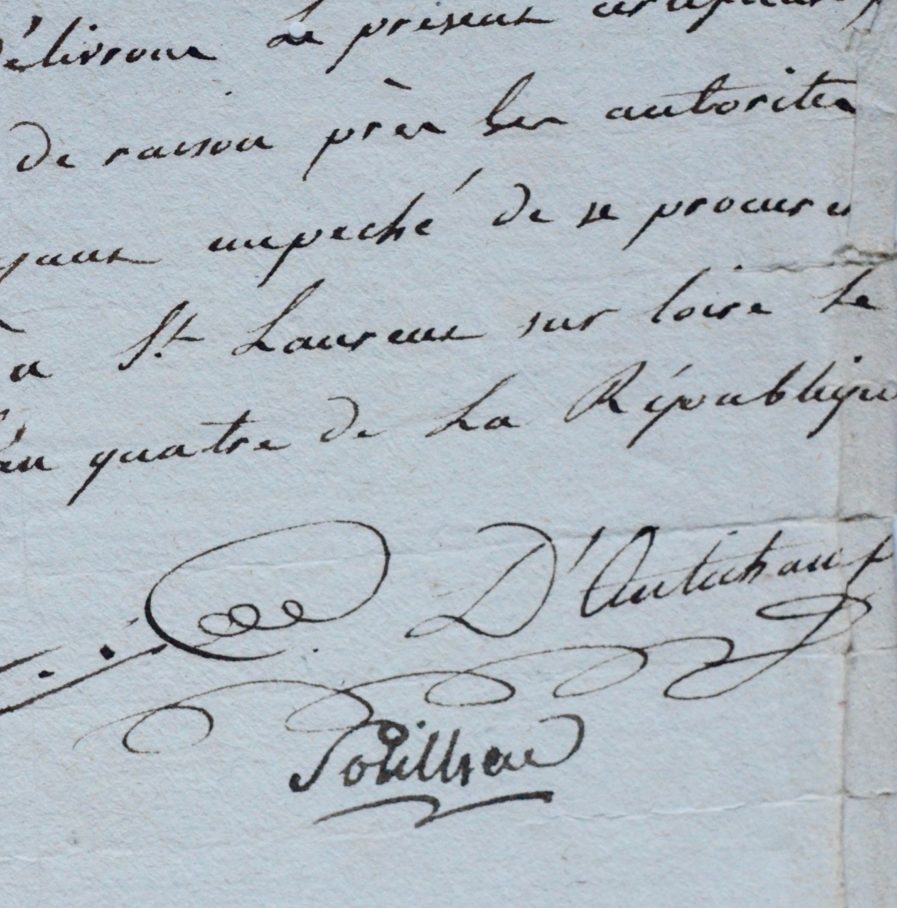 délivrons le présent certificat
de raison près les autorités
ayant empeché de se procurer
a St. Laurent sur loire le
l'an quatre de La République
D'Autichamp